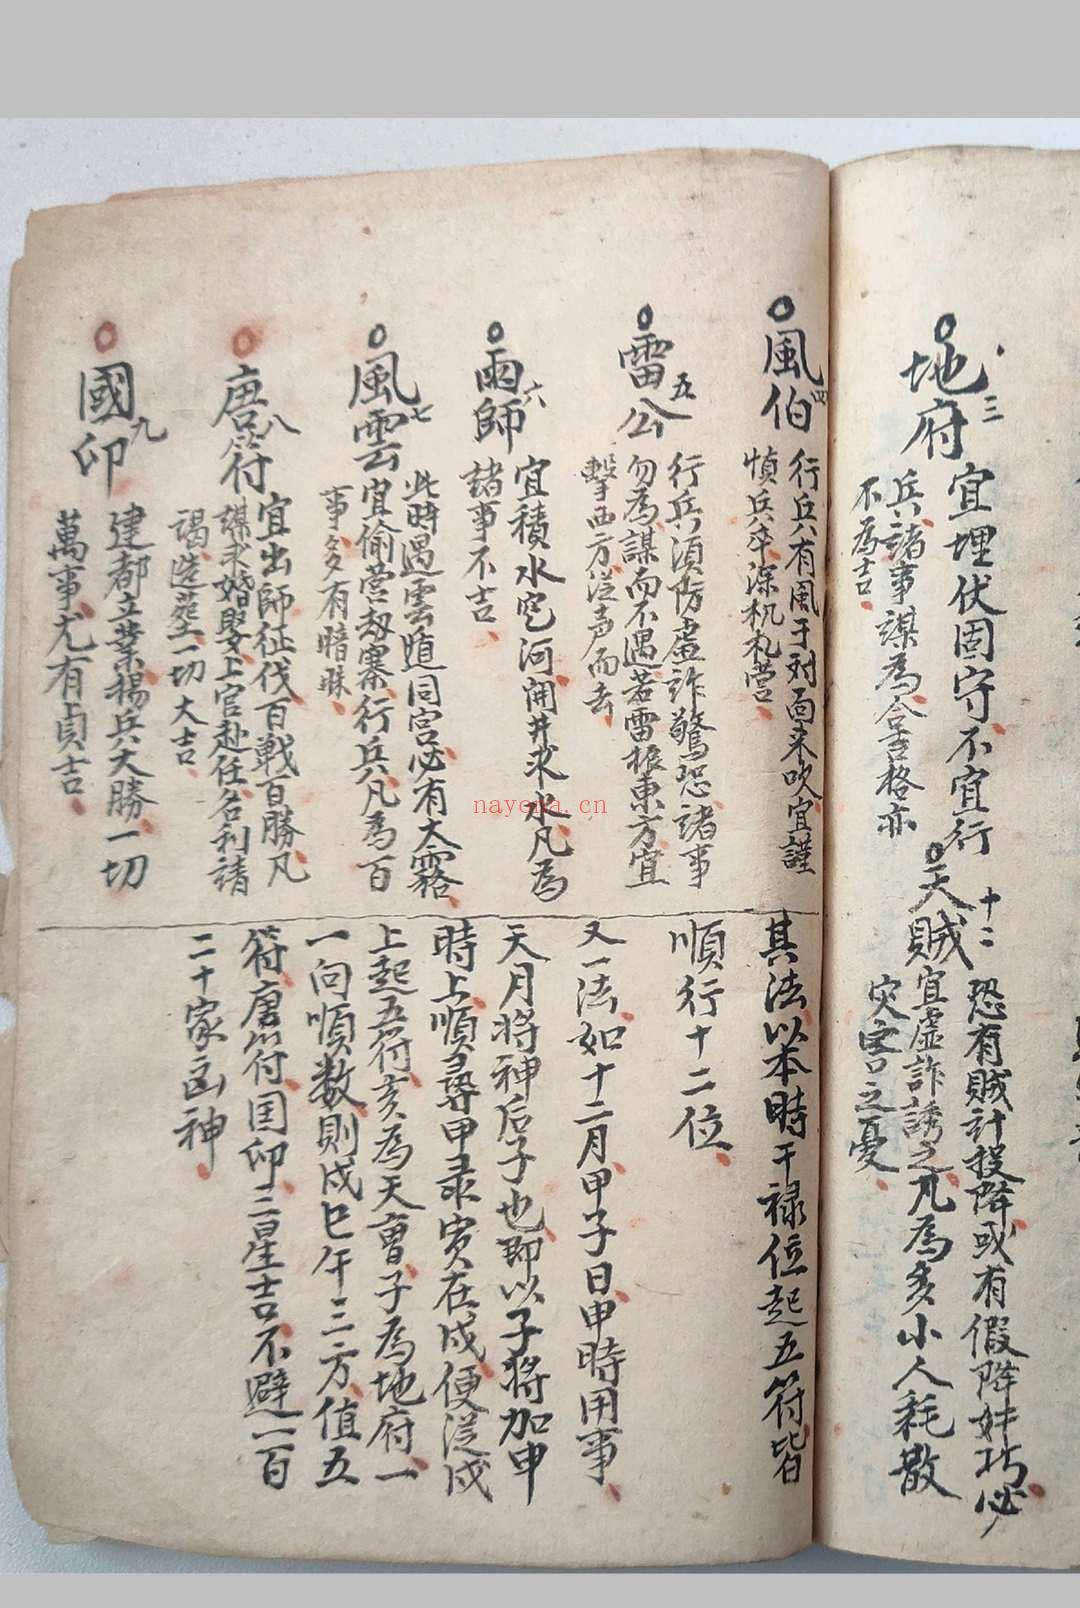 地府 三
宜埋伏固守不宜行
兵諸事謀為合吉格亦
不為吉
天賊 十二
恐有賊計投降或有假降奸巧必
宜虛詐誘之凡為多小人耗散
灾害之憂
風伯 四
行兵有風于対面来吹宜謹
慎兵卒深机札营
雷公 五
行兵須防虛詐驚恐諸事
勿為謀而不遇若雷振東方宜
擊西方従声而去
雨師 六
宜積水穵河開井求水凡為
諸事不吉
風雲 七
此時遇雲遁同宮必有大霧
宜偷营刼寨行兵凡為百
事多有暗昧
唐符 八
宜出師征伐百戰百勝凡
謀求婚娶上官赴任名利請
謁造塋一切大吉
國印 九
建都立業揚兵大勝一切
萬事尤有貞吉
其法以本時干禄位起五符皆
順行十二位
又一法如十二月甲子日申時用事
天月将神后子也即以子将加申
時上順尋甲录寅在戍便従戍
上起五符亥為天曹子為地府一
一向順数則戍巳午三方值五
符唐符国印三星吉不避一百
二十家凶神
nayona.cn